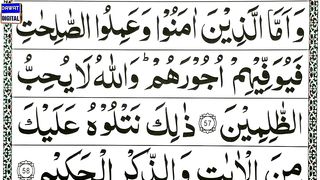 DAWAT
DIGITAL
وَاَمَّا الَّذِيْنَ اٰمَنُوْا وَعَمِلُوا الصّٰلِحٰتِ
فَيُوَفِّيْهِمْ اُجُوْرَهُمْ ؕ وَاللّٰهُ لَا يُحِبُّ
الظّٰلِمِيْنَ ۵۷ ذٰلِكَ نَتْلُوْهُ عَلَيْكَ
مِنَ الْاٰيٰتِ وَالذِّكْرِ الْحَكِيْمِ ۵۸